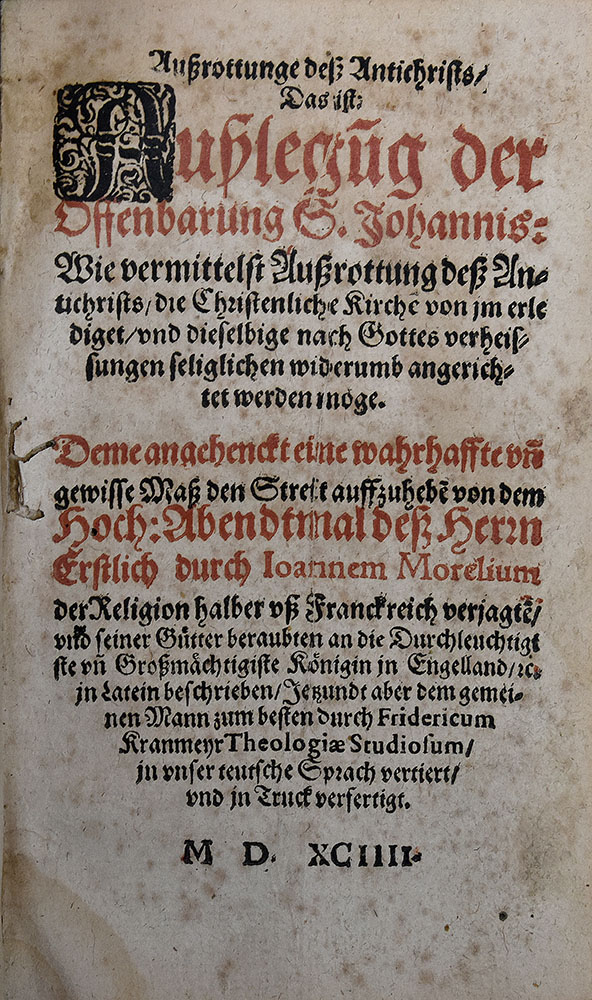 Außrottunge deß Antichrists/
Das ist:
Außlegũg der
Offenbarung S. Johannis:
Wie vermittelst Außrottung deß An-
tichrists/ die Christenliche Kirchẽ von jm erle
diget/ vnd dieselbige nach Gottes verheis-
sungen seliglichen widerumb angerich-
tet werden möge.
Deme angehenckt eine wahrhaffte vñ
gewisse Maß den Streit auffzuhebẽ von dem
Hoch: Abendtmal deß Herrn
Erstlich durch Ioannem Morelium
der Religion halber vß Franckreich verjagtẽ/
vnd seiner Gütter beraubten an die Durchleuchtigt
ste vñ Großmächtigiste Königin jn Engelland/ ꝛc.
jn Latein beschrieben/ Jetzundt aber dem gemei-
nen Mann zum besten durch Fridericum
Kranmeyr Theologiæ Studiosum/
jn vnser teutsche Sprach vertiert/
vnd jn Truck verfertigt.
M D. XCIIII.